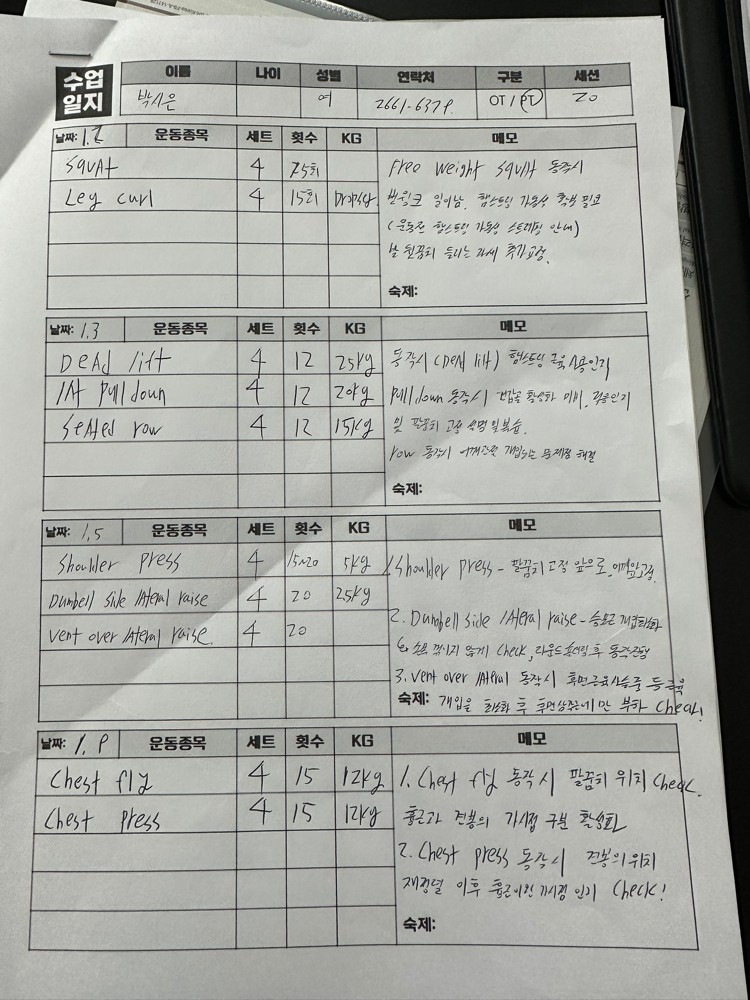 수업 일지
이름 나이 성별 연락처 구분 세션
박시은 여 2661-6378. OT / PT 20
날짜: 1.2 운동종목 세트 횟수 KG 메모
Squat 4 25회 Free weight squat 동작시
Leg curl 4 15회 Dropset 벗윙크 일어남. 햄스트링 가동성 확보 필요
(운동전 햄스트링 가동성 스트레칭 안내)
발 뒷꿈치 들리는 자세 추가교정.
숙제:
날짜: 1.3 운동종목 세트 횟수 KG 메모
Dead lift 4 12 25kg 동작시 (Dead lift) 햄스트링 근육 사용인지
lAt pull down 4 12 20kg pull down 동작시 견갑골 활성화 미비.
Seated row 4 12 15kg 및 팔꿈치 고정 설명 및 복습.
row 동작시 어깨관절 개입되는 문제점 해결
숙제:
날짜: 1.5 운동종목 세트 횟수 KG 메모
Shoulder press 4 15~20 5kg 1. Shoulder press - 팔꿈치 고정 앞으로,
Dumbell side lateral raise 4 20 2.5kg 2. Dumbell side lateral raise - 승모근 개입
vent over lateral raise. 4 20 손목 꺾이지 않게 check, 라운드숄더 후 동작진행
3. vent over lateral 동작시 후면근육사슬 중 등근육
숙제: 개입을 최소화 후 후면삼각근에만 부하 check!
날짜: 1. 8 운동종목 세트 횟수 KG 메모
Chest fly 4 15 12kg 1. Chest fly 동작시 팔꿈치 위치 Check.
Chest press 4 15 12kg 흉근과 견봉의 가시점 구분 활성화
2. Chest press 동작시 견봉의 위치
재정렬 이후 흉근 가시점 인지 Check!
숙제: